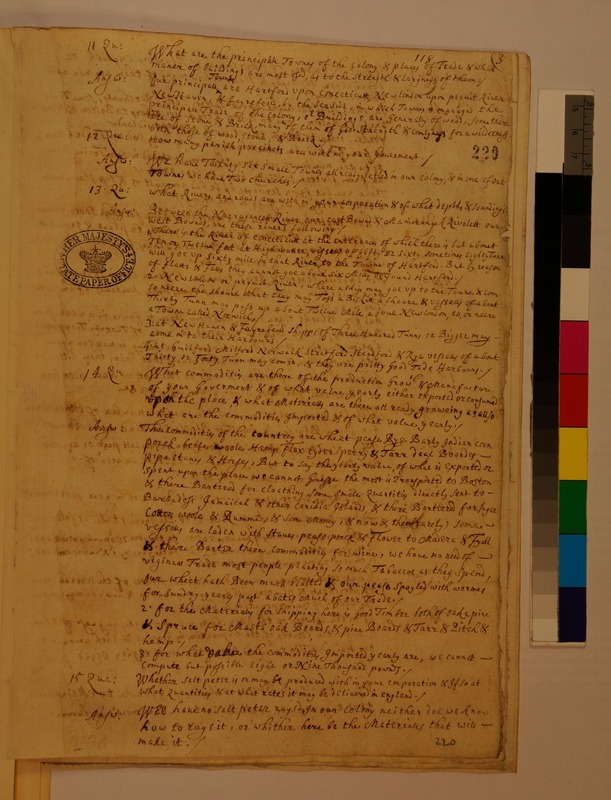 118 (3
11 Qu: What are the principle Townes of the Colony & places of Trade & what
maner of buildings are most of, as to the strength & largnes of them
Answ: Our principall Towns are Hartford upon Conecticutt, New London upon pequit River
New Haven & Fayrefeild by the Seaside, in which Townes
principall Trade of the Colony, or Buildings are Generally of wood, Some there
are of Stone & Brick, many of them of Good Strength & comlynes for a wildernes
both those of wood, stone & Brick
12 Que: How many parish precincts are within your Goverment /
220
Answ: We have Twenty Six Small Townes already setled in our Colony, & in one of our
Townes we have Two churches
13 Qu: What Rivers are with in your corporation & of what depth & soundings
Answ: Between the Naroganset River our East Bownds & Mamaronek Rivolett our
West Bownds, are these rivers following /
There is the River of Conecticut at the entrance of which there is but about
Ten or Twelve foot at Highwater, vessells of fifty or sixty sometimes eighty Tunn
will goe up sixty mile in that River to the Towne of Hartford. But by reason
of Flats & Falls they cannot goe above six Miles beyond Hartford /
2 At New London in pequit River, where a ship may goe up to the Towne & com
so neere the shoare that they may Toss a Biskit a shoare & vessells of about
Thirty Tunn may pass up about Twelve Mile above New London, to, or neere
a Towne called Norwich /
3 At New Haven & Fayrefeild Shipps of Three Hundred Tunns, or Bigger may
come in to their Harbours /
4 At Guilford Milford Norwalk Stratford Standford & Rye vessells of about
Thirty, or Forty Tunn may com in, & they are pritty Good Tide Harbours /
14 Qu: What commodity are those of the production Grow & Manufacture
of your Goverment & of what value yearly either exported or consumed
upon the place & what Materialls are there all ready growing as also
what are the commodities Imported & of what value yearly /
Answ: The Commodities of the country are wheat pease Rye Barly Indian corn
pork beife woole Hemp Flax Cyder perry & Tarr deal Boards
pipe staus & Horses, But to say the yearly value of what is exported or
spent upon the place we cannot Guess the most is Transported to Boston
& there Bartred for cloathing, some smale Quantities directly sent to
Barbadoss Jamaica & other Caribia Islands, & there Bartered for sugar
Cotton woole & Rumme & som Money, & now & then (rarely) some
vessells are laden with staves pease porck & Flower to Madera & Fyall
& there Barter their commodities for wine, we have no need of
virginia Trade most people planting so much Tabacco as they spend,
our wheat hath Been much blasted & our pease spoyled with wormes
for sundry years past abates much of our Trade /
2. For the Materialls for Shipping here is good Timber both of oak, pine
& Spruce for Masts oak Boards & pine Boards & Tarr & Pitch &
hemp /
3. For what value the commodities Imported yearly are, we cannot
compute but possible eight or Nine Thousand pounds
15 Que: Whether salt peter is or may be produced with in your corporation & if so at
what Quantities & at what rates it may be delivered in england /
Answ: Wee have no salt peter raysed in our Colony neither doe we know
how to rays it, or whither here be the Materialls that will
make it /
220
HER MAJESTY'S
STATE PAPER OFFICE